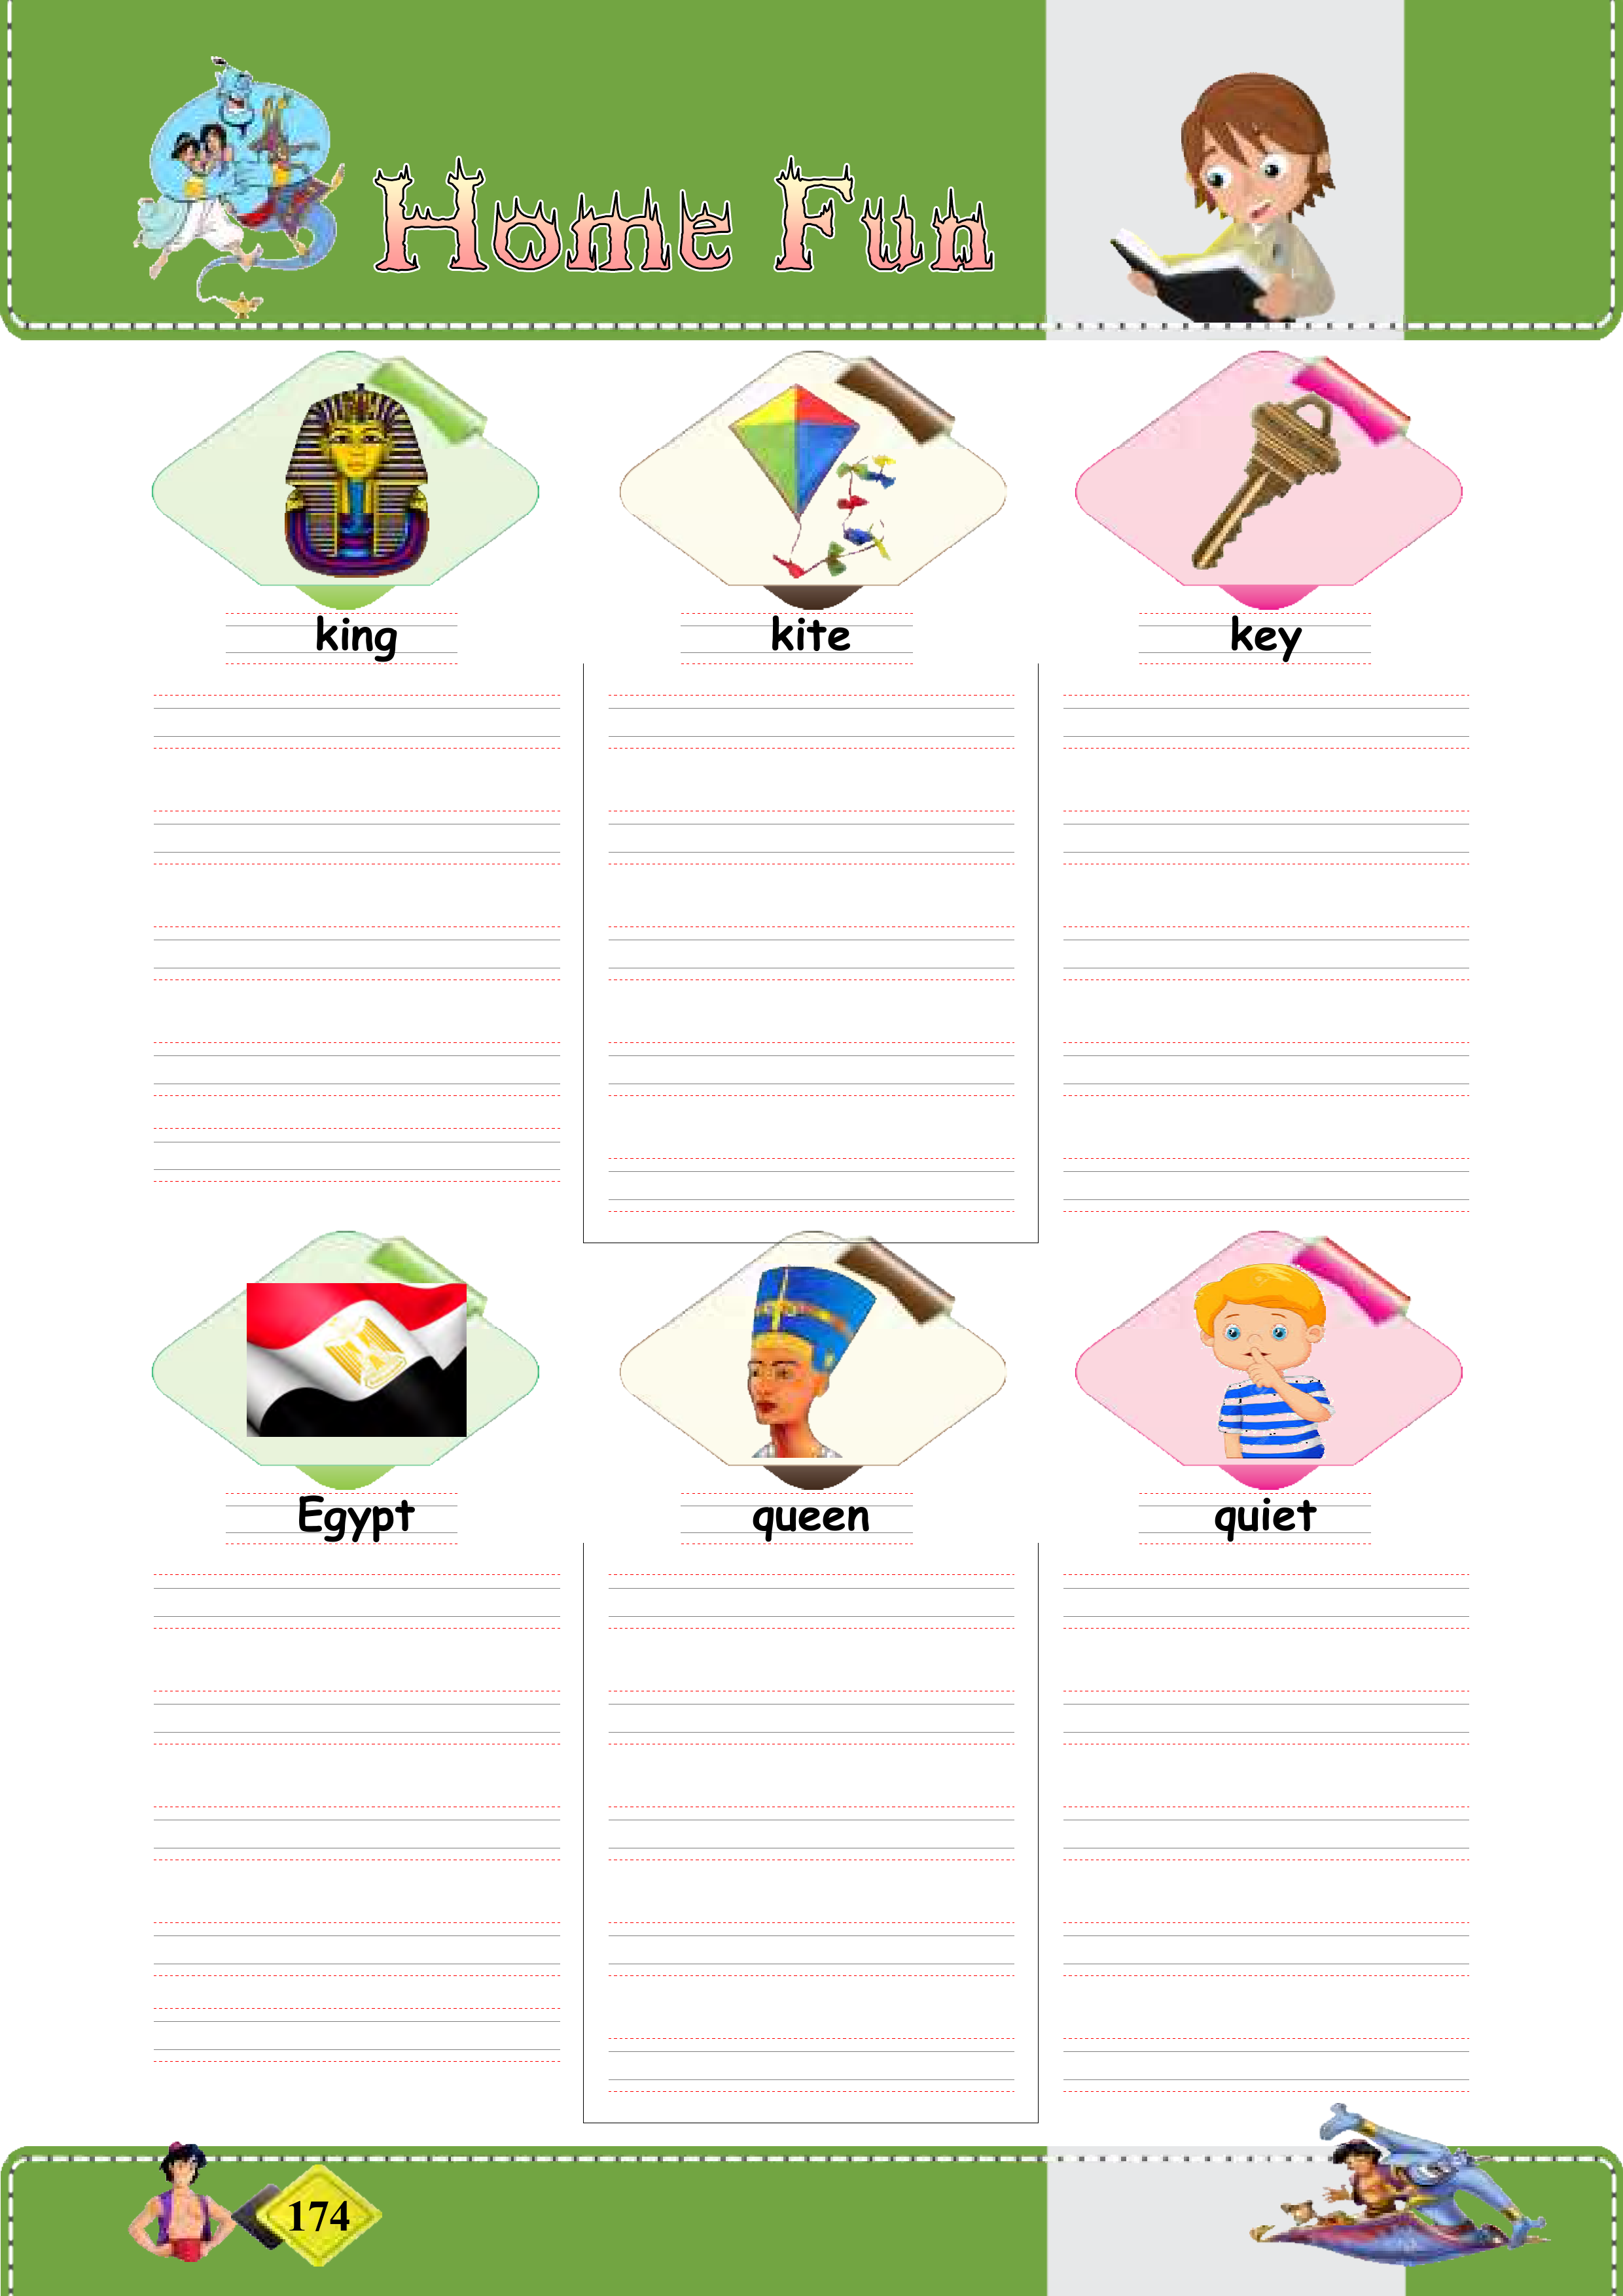 Home Fun
king kite key
Egypt queen quiet
174